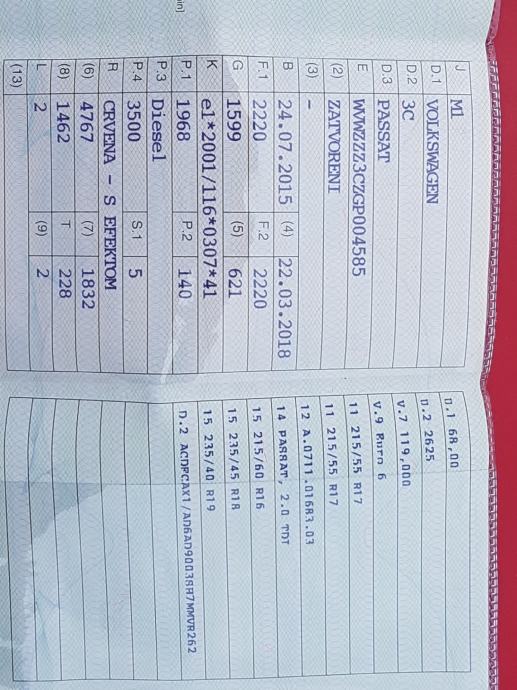 J M1
D.1 VOLKSWAGEN
D.2 3C
D.3 PASSAT
E WVWZZZ3CZGP004585
(2) ZATVORENI
(3) -
B 24.07.2015 (4) 22.03.2018
F.1 2220 F.2 2220
G 1599 (5) 621
K e1*2001/116*0307*41
P.1 1968 P.2 140
P.3 Diesel
P.4 3500 S.1 5
R CRVENA - S EFEKTOM
(6) 4767 (7) 1832
(8) 1462 T 228
L 2 (9) 2
(13)
U.1 68,00
U.2 2625
V.7 119,000
V.9 Euro 6
11 215/55 R17
11 215/55 R17
12 A.0711.01683.03
14 PASSAT, 2.0 TDI
15 215/60 R16
15 235/45 R18
15 235/40 R19